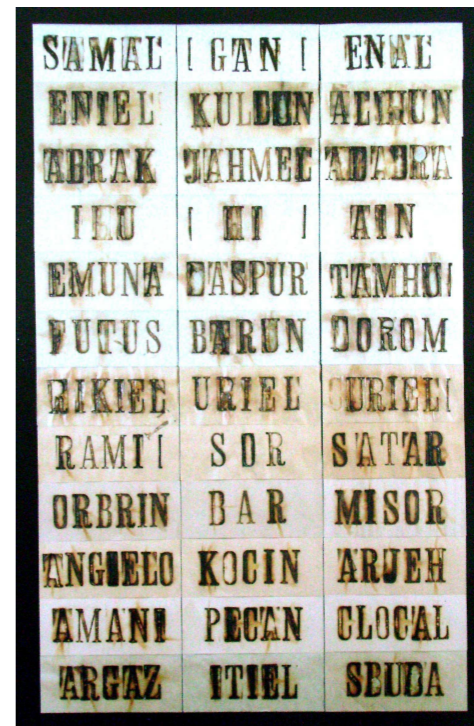 SAMAL GAN ENAL
ENIEL
ABRAK JAHMEL
HI AIN
EMUNA DASPUR TAMHU
BARUN DOROM
RIKIEL URIEL URIEL
RAMI SOR SATAR
ORBRIN BAR MISOR
ANGIELO KOCIN ARJEH
AMANI PECAN CLOCAL
ARGAZ ITIEL